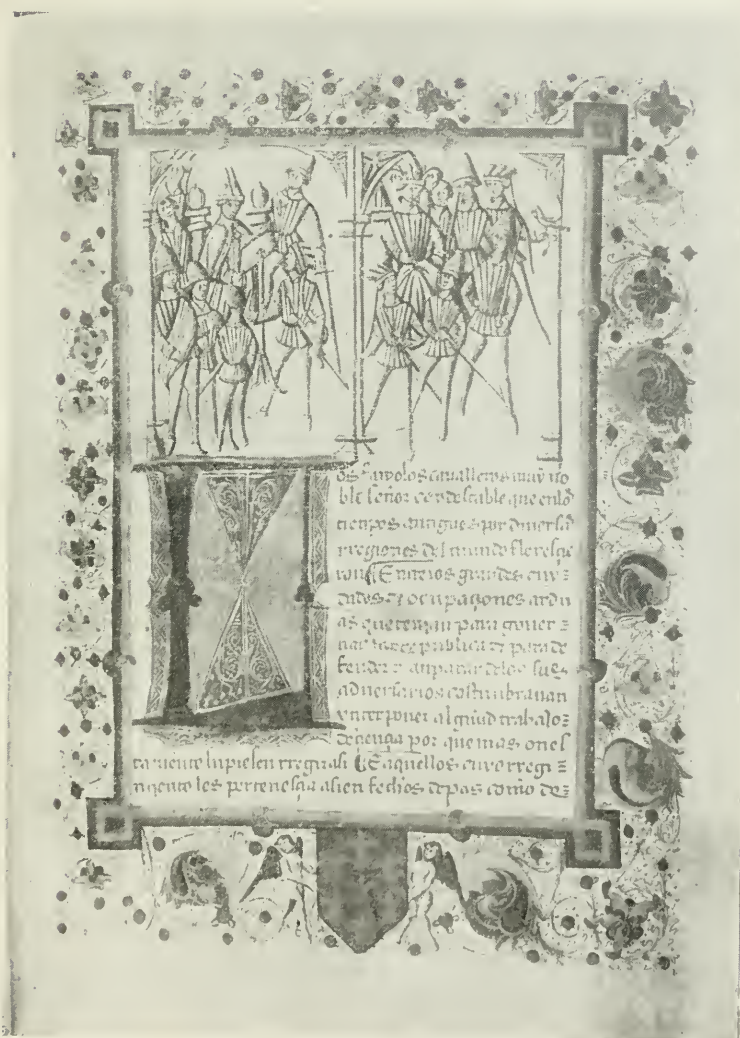 os famosos cavalleros muy no
ble señor condestable que en los
tienpos antiguos por diversas
rregiones del mundo floresçie
ron Entre los grandes cuy=
dados & ocupaçiones ardu
as que tenian para gover=
nar la cosa publica & para de
fender & anparar de los sus
adversarios costunbravan
ynterponer algund trabajo=
de por que mas ones
ta mente supiesen rregir asi E aquellos cuyo rregi=
miento les perteneçia asi en fechos de pas como de=